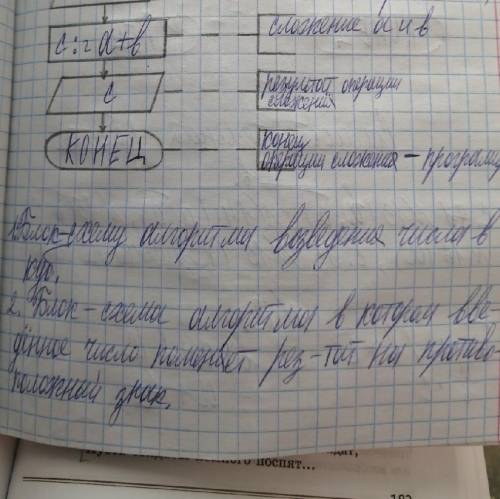 c := a+b
сложение a и b
c
результат операции
сложения
КОНЕЦ
конец
операции сложения – програм
1. Блок-схему алгоритма возведения числа в
куб.
2. Блок-схема алгоритма в котором вве-
дённое число поменяет рез-тат на противо
положный знак.
поспят...